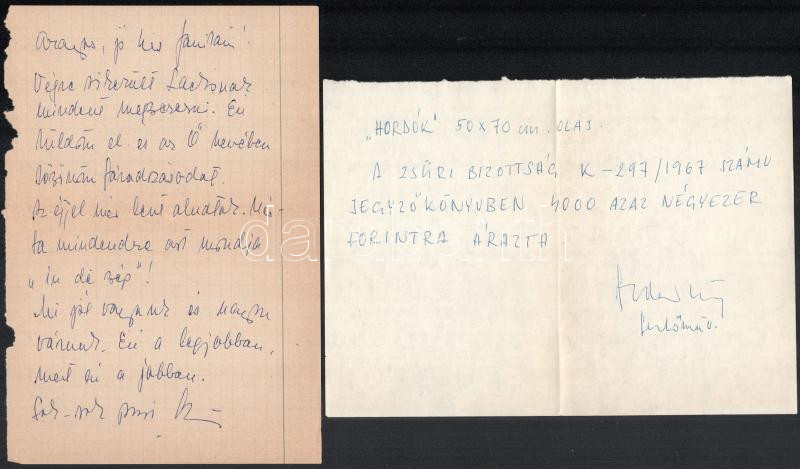 Aranyos, jó
Végre sikerült Lacónak
mindent megszerezni. Én
küldöm el és az Ő nevében
köszönöm fáradozásodat.
Az éjjel már lent aludtak. Már-
ta mindendre azt mondja
„ !
Mi jól vagyunk és nagyon
várunk. Én a legjobban,
mert én a jobban.
Sok-sok puszi
„HORDÓK" 50x70 cm. OLAJ.
A ZSŰRI BIZOTTSÁG K-297/1967 SZÁMU
JEGYZŐKÖNYVBEN 4000 AZAZ NÉGYEZER
FORINTRA ÁRAZTA
festőműv.
darabanth